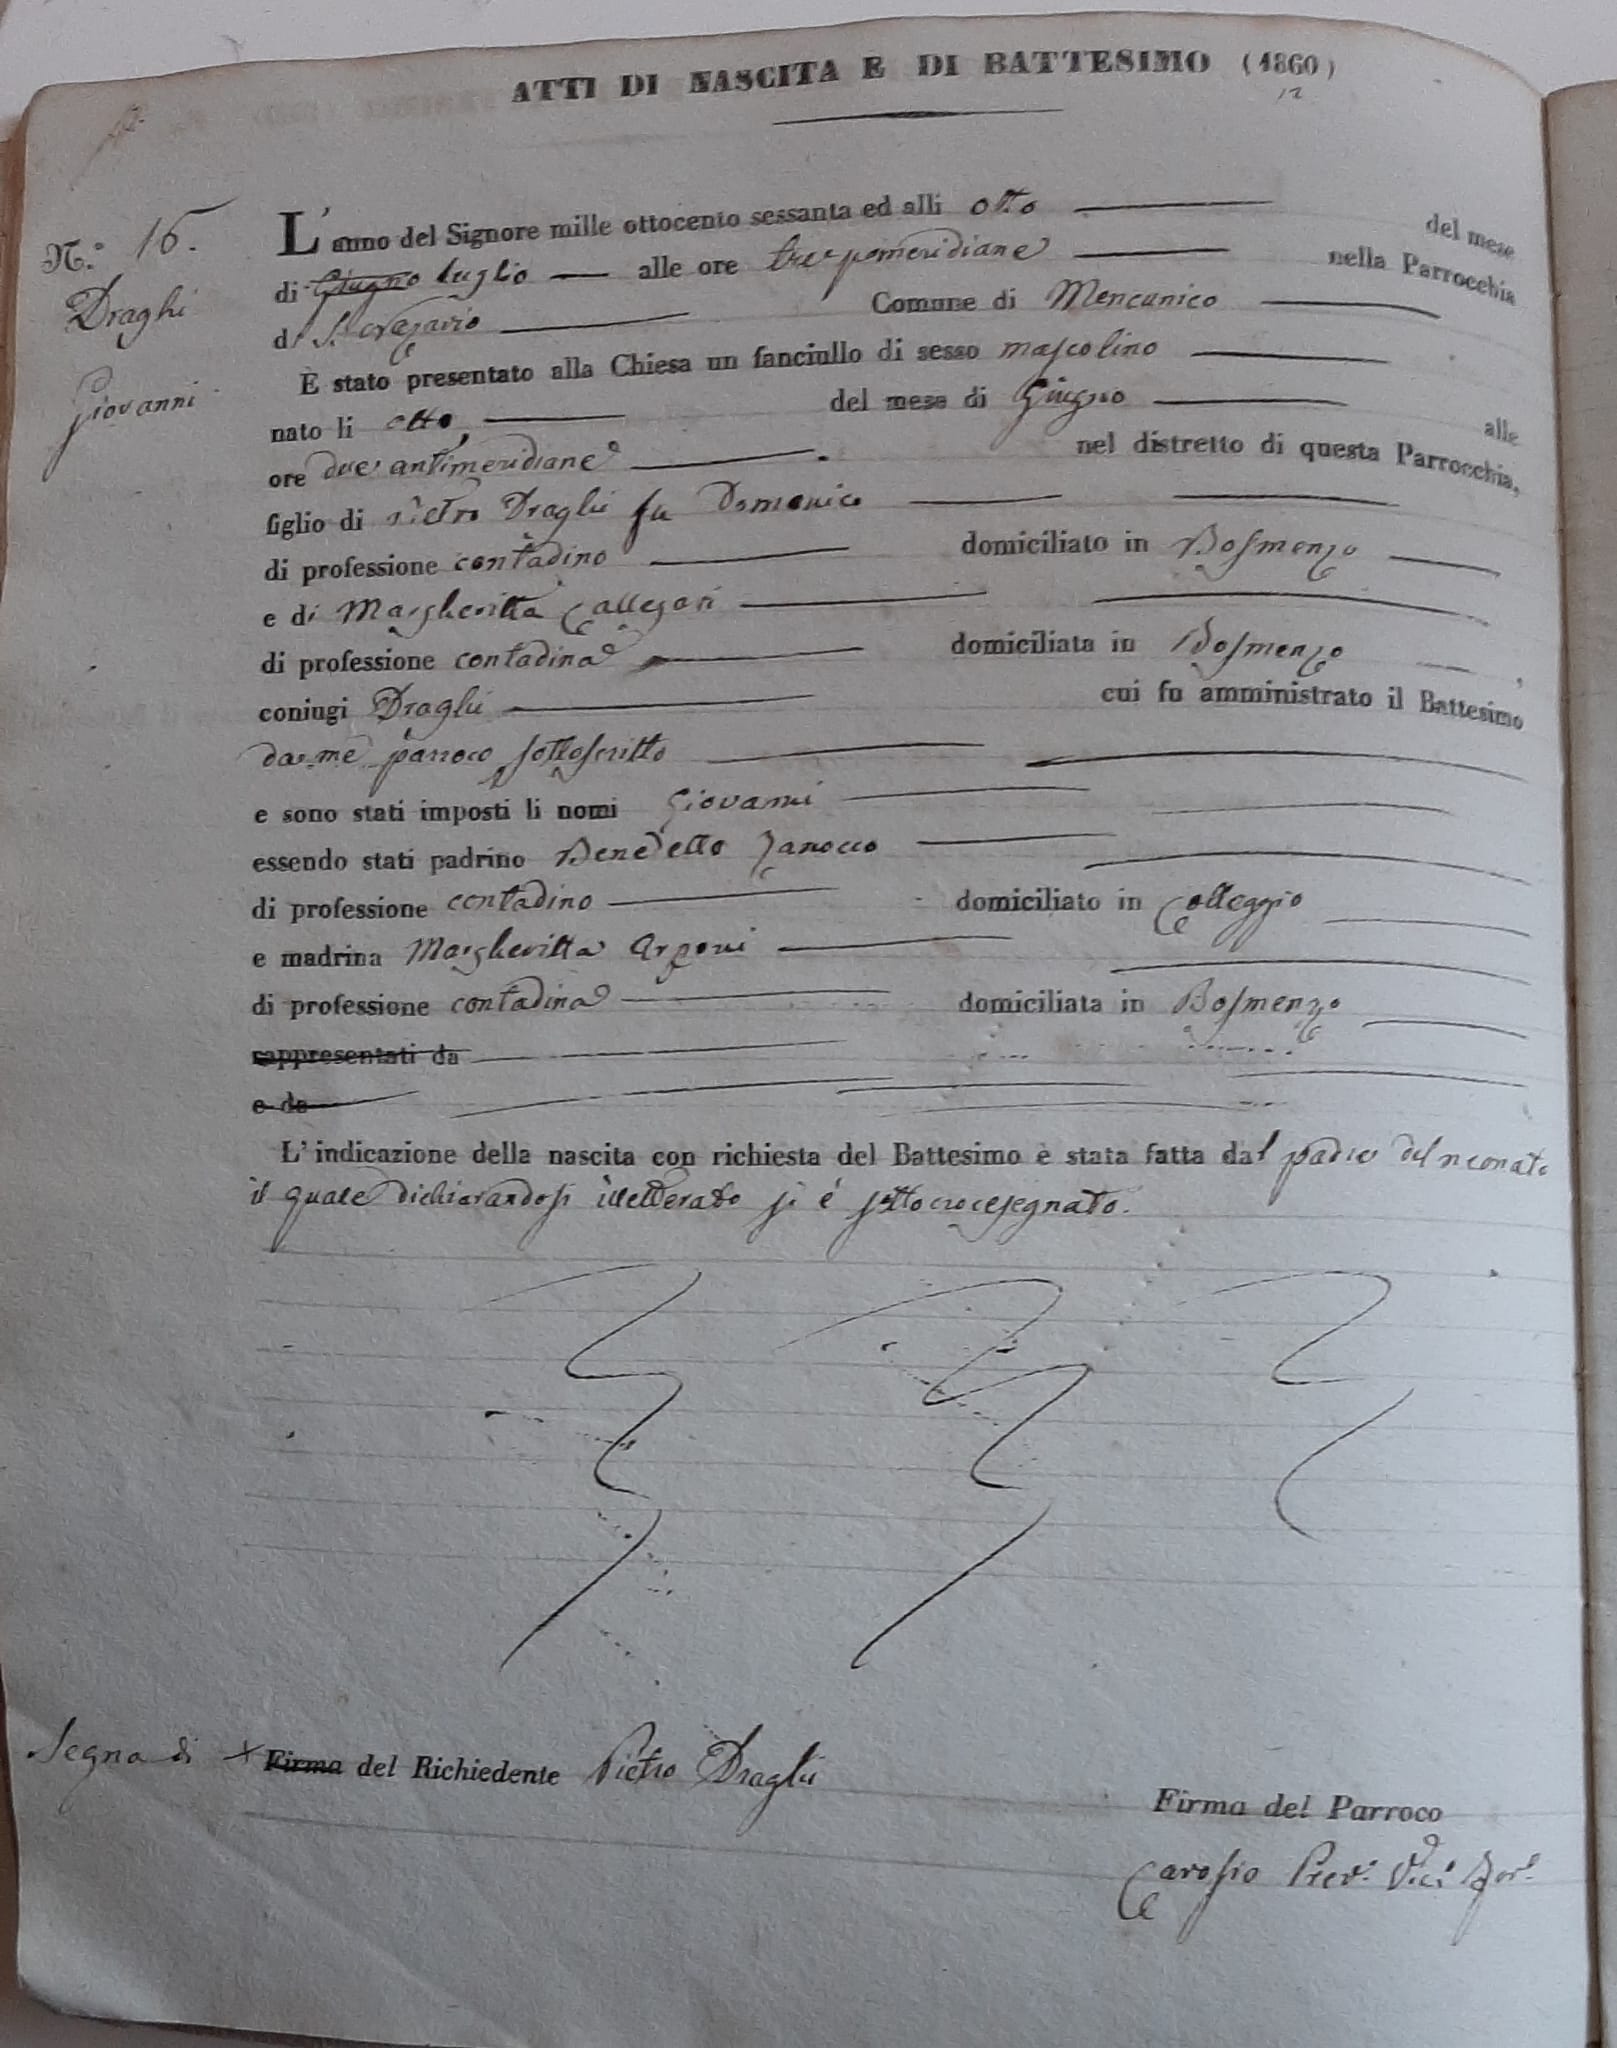 ATTI DI NASCITA E DI BATTESIMO (1860)
12
N.º 16.
Draghi
Giovanni
L'anno del Signore mille ottocento sessanta ed alli otto del mese
di Giugno luglio alle ore tre pomeridiane nella Parrocchia
di S. Nazario Comune di Mencunico
È stato presentato alla Chiesa un fanciullo di sesso mascolino
nato li otto, del mese di Giugno alle
ore due antimeridiane nel distretto di questa Parrocchia,
figlio di Pietro Draghi fu Domenico
di professione contadino domiciliato in Bosmenzo
e di Margheritta Callegari
di professione contadina domiciliata in Bosmenzo,
coniugi Draghi cui fu amministrato il Battesimo
da me parroco sottoscritto
e sono stati imposti li nomi Giovanni
essendo stati padrino Benedetto Zanocco
di professione contadino domiciliato in Colleggio
e madrina Margheritta
di professione contadina domiciliata in Bosmenzo
rappresentati da
e da
L'indicazione della nascita con richiesta del Battesimo è stata fatta dal padre del neonato
il quale dichiarandosi illetterato si è sottocrocesegnato.
Segno di + Firma del Richiedente Pietro Draghi
Firma del Parroco
Carosio Prev.